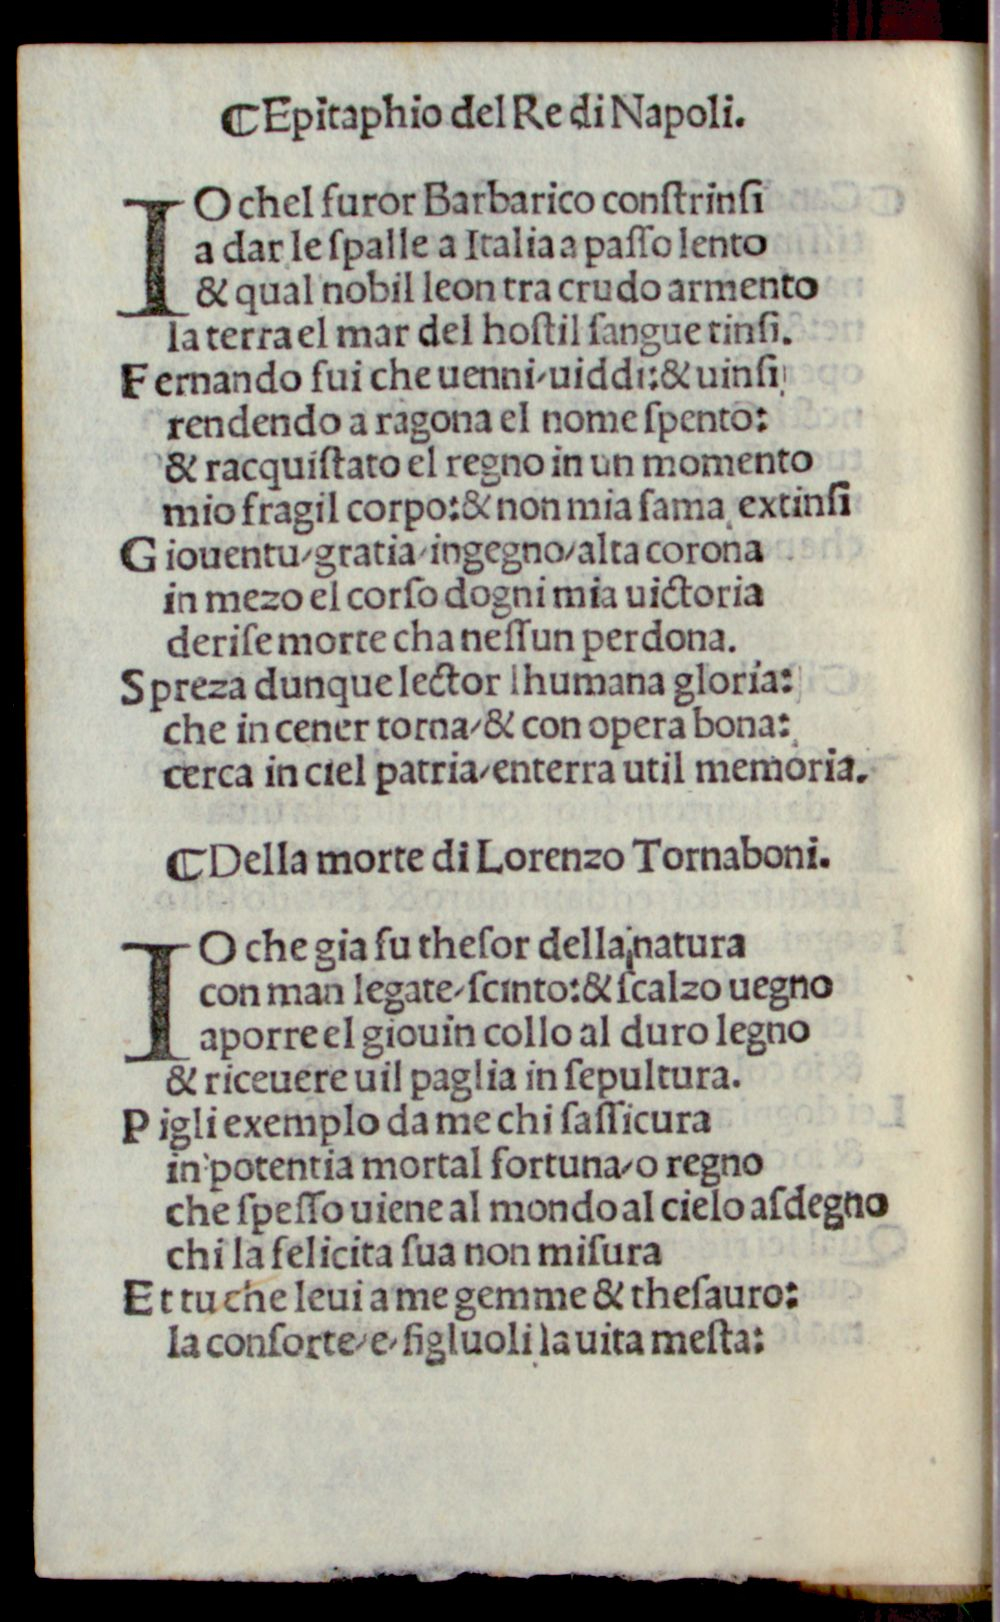 ⁋Epitaphio del Re di Napoli.
IO chel furor Barbarico conſtrinſi
a dar le ſpalle a Italia a paſſo lento
& qual nobil leon tra crudo armento
la terra el mar del hoſtil ſangue tinſi.
Fernando fui che uenni/uiddi:& uinſi
rendendo a ragona el nome ſpento:
& racquiſtato el regno in un momento
mio fragil corpo:& non mia fama extinſi
Giouentu/gratia/ingegno/alta corona
in mezo el corſo dogni mia uictoria
deriſe morte cha neſſun perdona.
Spreza dunque lector lhumana gloria:
che in cener torna/& con opera bona:
cerca in ciel patria/enterra util memoria.
⁋Della morte di Lorenzo Tornaboni.
IO che gia fu theſor della natura
con man legate/scinto:& ſcalzo uegno
aporre el giouin collo al duro legno
& riceuere uil paglia in ſepultura.
Pigli exemplo da me chi ſaſſicura
in potentia mortal fortuna/o regno
che ſpeſſo uiene al mondo al cielo aſdegno
chi la felicita ſua non miſura
Et tu che leui a me gemme & theſauro:
la conſorte/e/figluoli la uita meſta: